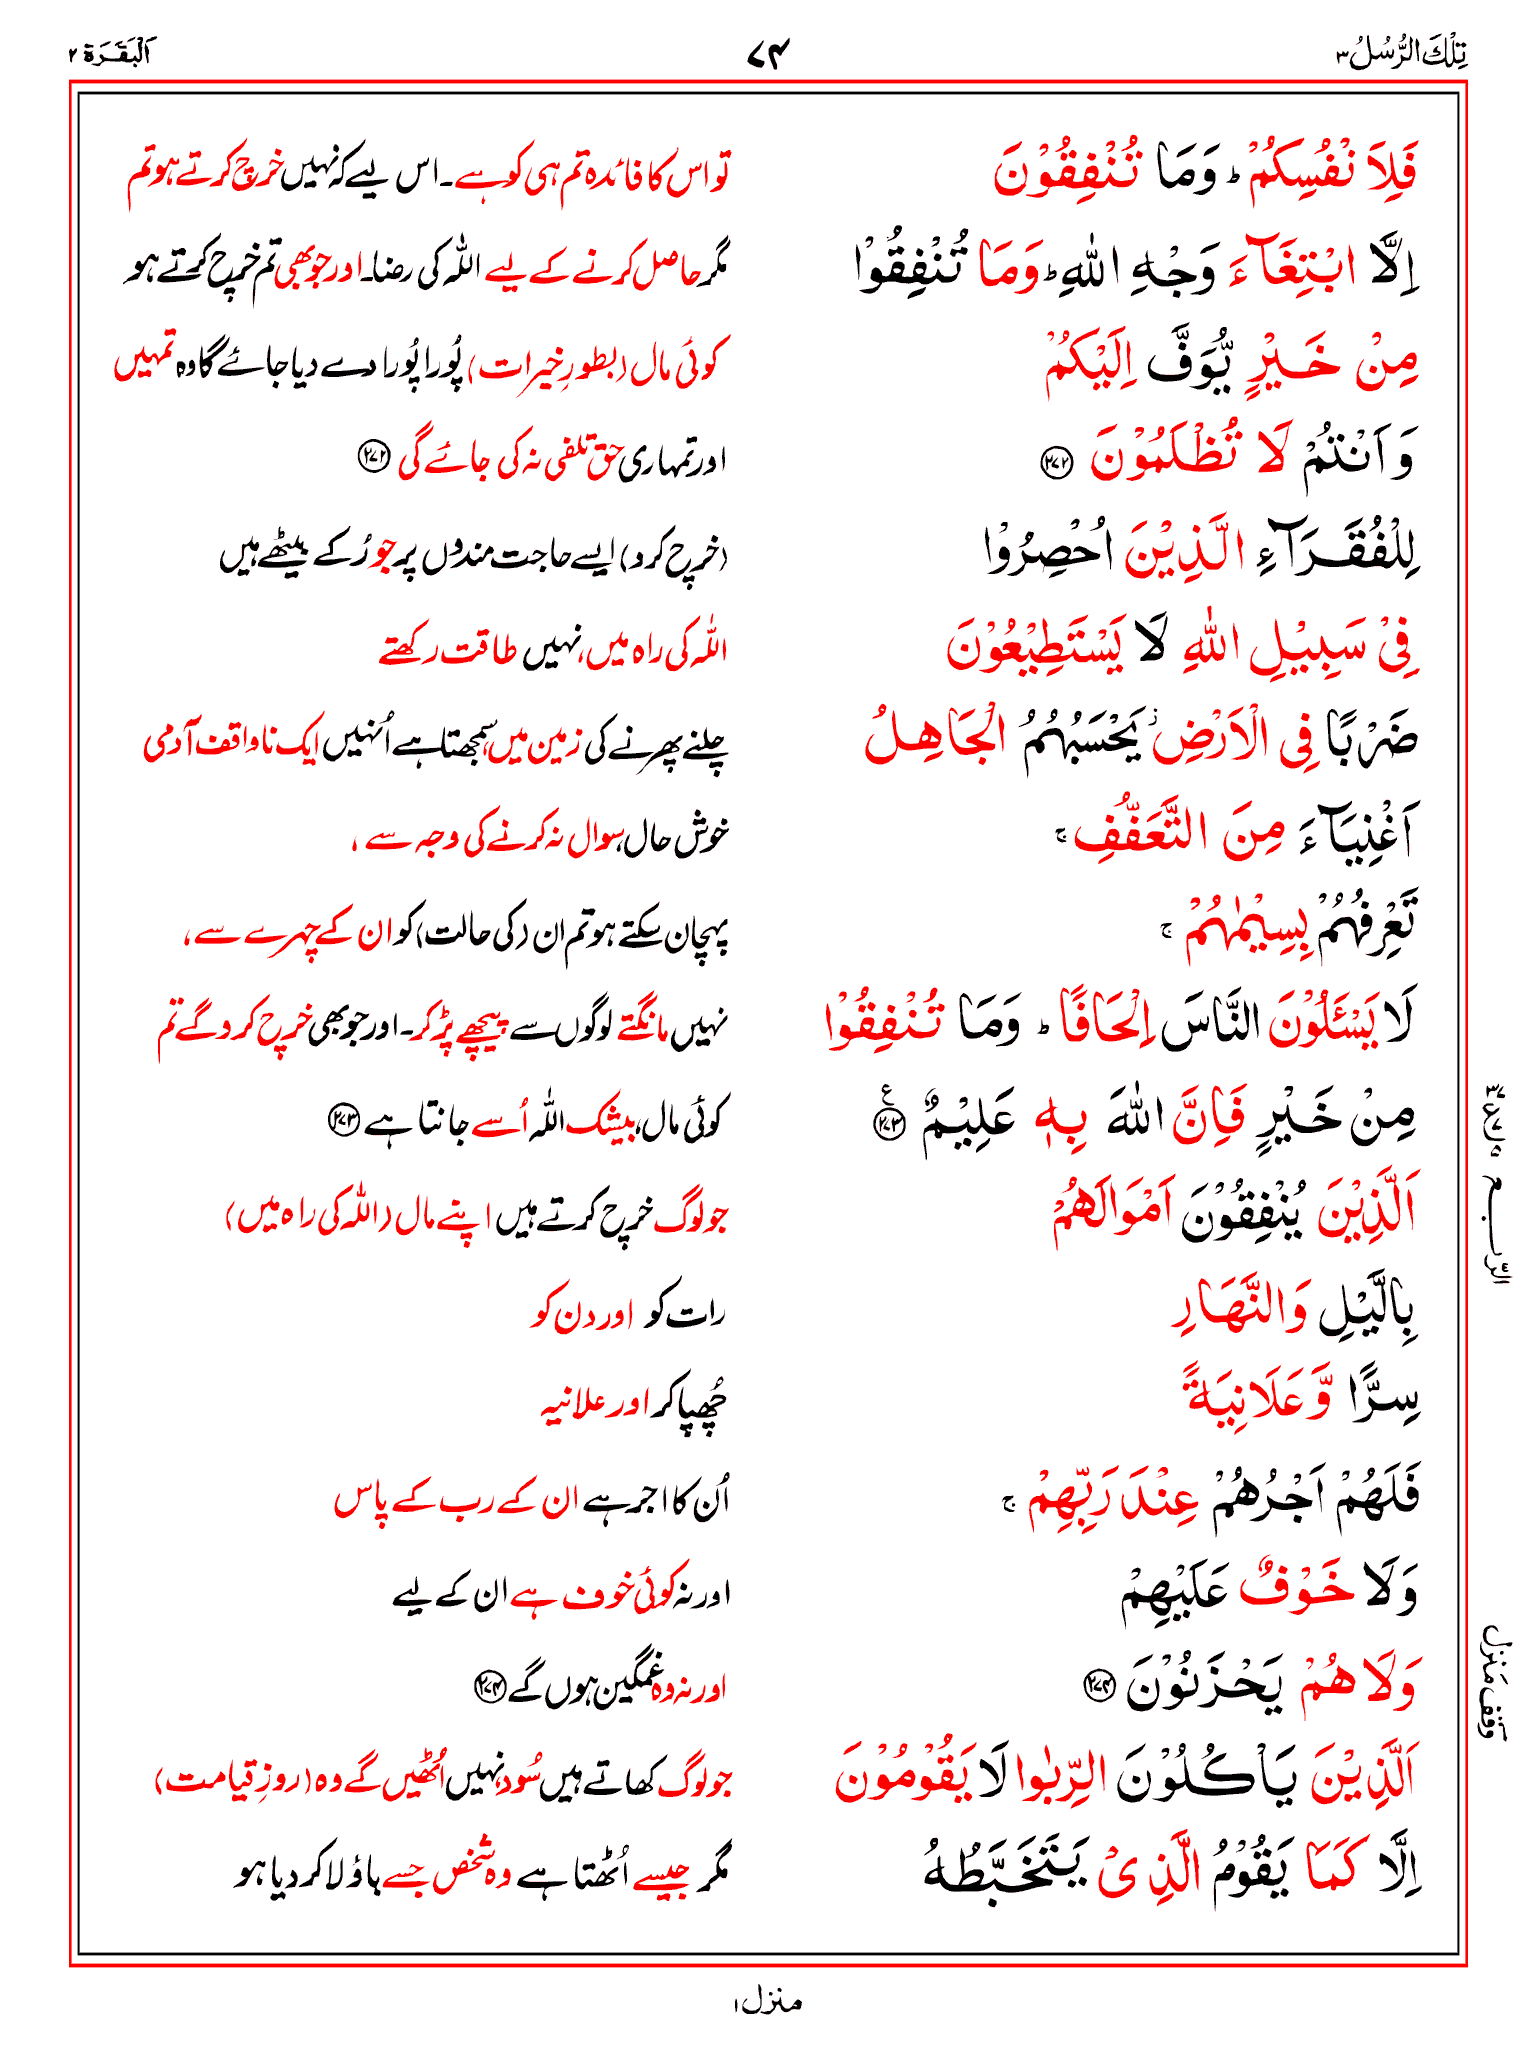 تِلْكَ الرُّسُلُ ٣
٧۴
اَلْبَقَرَة ٢
فَلِاَ نْفُسِكُمْ ؕ وَمَا تُنْفِقُوْنَ
تو اس کا فائدہ تم ہی کو ہے۔ اس لیے کہ نہیں خرچ کرتے ہو تم
اِلَّا ابْتِغَآءَ وَجْهِ اللّٰهِ ؕ وَمَا تُنْفِقُوْا
مگر حاصل کرنے کے لیے اللہ کی رضا۔ اور جو بھی تم خرچ کرتے ہو
مِنْ خَيْرٍ يُّوَفَّ اِلَيْكُمْ
کوئی مال (بطورِ خیرات) پُورا پُورا دے دیا جائے گا وہ تمہیں
وَاَنْتُمْ لَا تُظْلَمُوْنَ ۲۷۲
اور تمہاری حق تلفی نہ کی جائے گی ۲۷۲
لِلْفُقَرَآءِ الَّذِيْنَ اُحْصِرُوْا
(خرچ کرو) ایسے حاجت مندوں پر جو رُکے بیٹھے ہیں
فِىْ سَبِيْلِ اللّٰهِ لَا يَسْتَطِيْعُوْنَ
اللہ کی راہ میں، نہیں طاقت رکھتے
ضَرْبًا فِى الْاَرْضِ ؗ يَحْسَبُهُمُ الْجَاهِلُ
چلنے پھرنے کی زمین میں، سمجھتا ہے اُنہیں ایک ناواقف آدمی
اَغْنِيَآءَ مِنَ التَّعَفُّفِ ۚ
خوش حال، سوال نہ کرنے کی وجہ سے ،
تَعْرِفُهُمْ بِسِيْمٰهُمْ ۚ
پہچان سکتے ہو تم ان (کی حالت) کو ان کے چہرے سے ،
لَا يَسْـَٔلُوْنَ النَّاسَ اِلْحَافًا ؕ وَمَا تُنْفِقُوْا
نہیں مانگتے لوگوں سے پیچھے پڑ کر۔ اور جو بھی خرچ کرو گے تم
مِنْ خَيْرٍ فَاِنَّ اللّٰهَ بِهٖ عَلِيْمٌ ۲۷۳ ع
کوئی مال، بیشک اللہ اُسے جانتا ہے ۲۷۳
اَلَّذِيْنَ يُنْفِقُوْنَ اَمْوَالَهُمْ
جو لوگ خرچ کرتے ہیں اپنے مال (اللہ کی راہ میں)
بِالَّيْلِ وَالنَّهَارِ
رات کو اور دن کو
سِرًّا وَّعَلَانِيَةً
چُھپا کر اور علانیہ
فَلَهُمْ اَجْرُهُمْ عِنْدَ رَبِّهِمْ ۚ
اُن کا اجر ہے ان کے رب کے پاس
وَلَا خَوْفٌ عَلَيْهِمْ
اور نہ کوئی خوف ہے ان کے لیے
وَلَا هُمْ يَحْزَنُوْنَ ۲۷۴
اور نہ وہ غمگین ہوں گے ۲۷۴
اَلَّذِيْنَ يَاْكُلُوْنَ الرِّبٰوا لَا يَقُوْمُوْنَ
جو لوگ کھاتے ہیں سُود، نہیں اُٹھیں گے وہ (روزِ قیامت)
اِلَّا كَمَا يَقُوْمُ الَّذِىْ يَتَخَبَّطُهُ
مگر جیسے اُٹھتا ہے وہ شخص جسے باؤلا کر دیا ہو
الرّبع
وقف منزل
منزل ۱